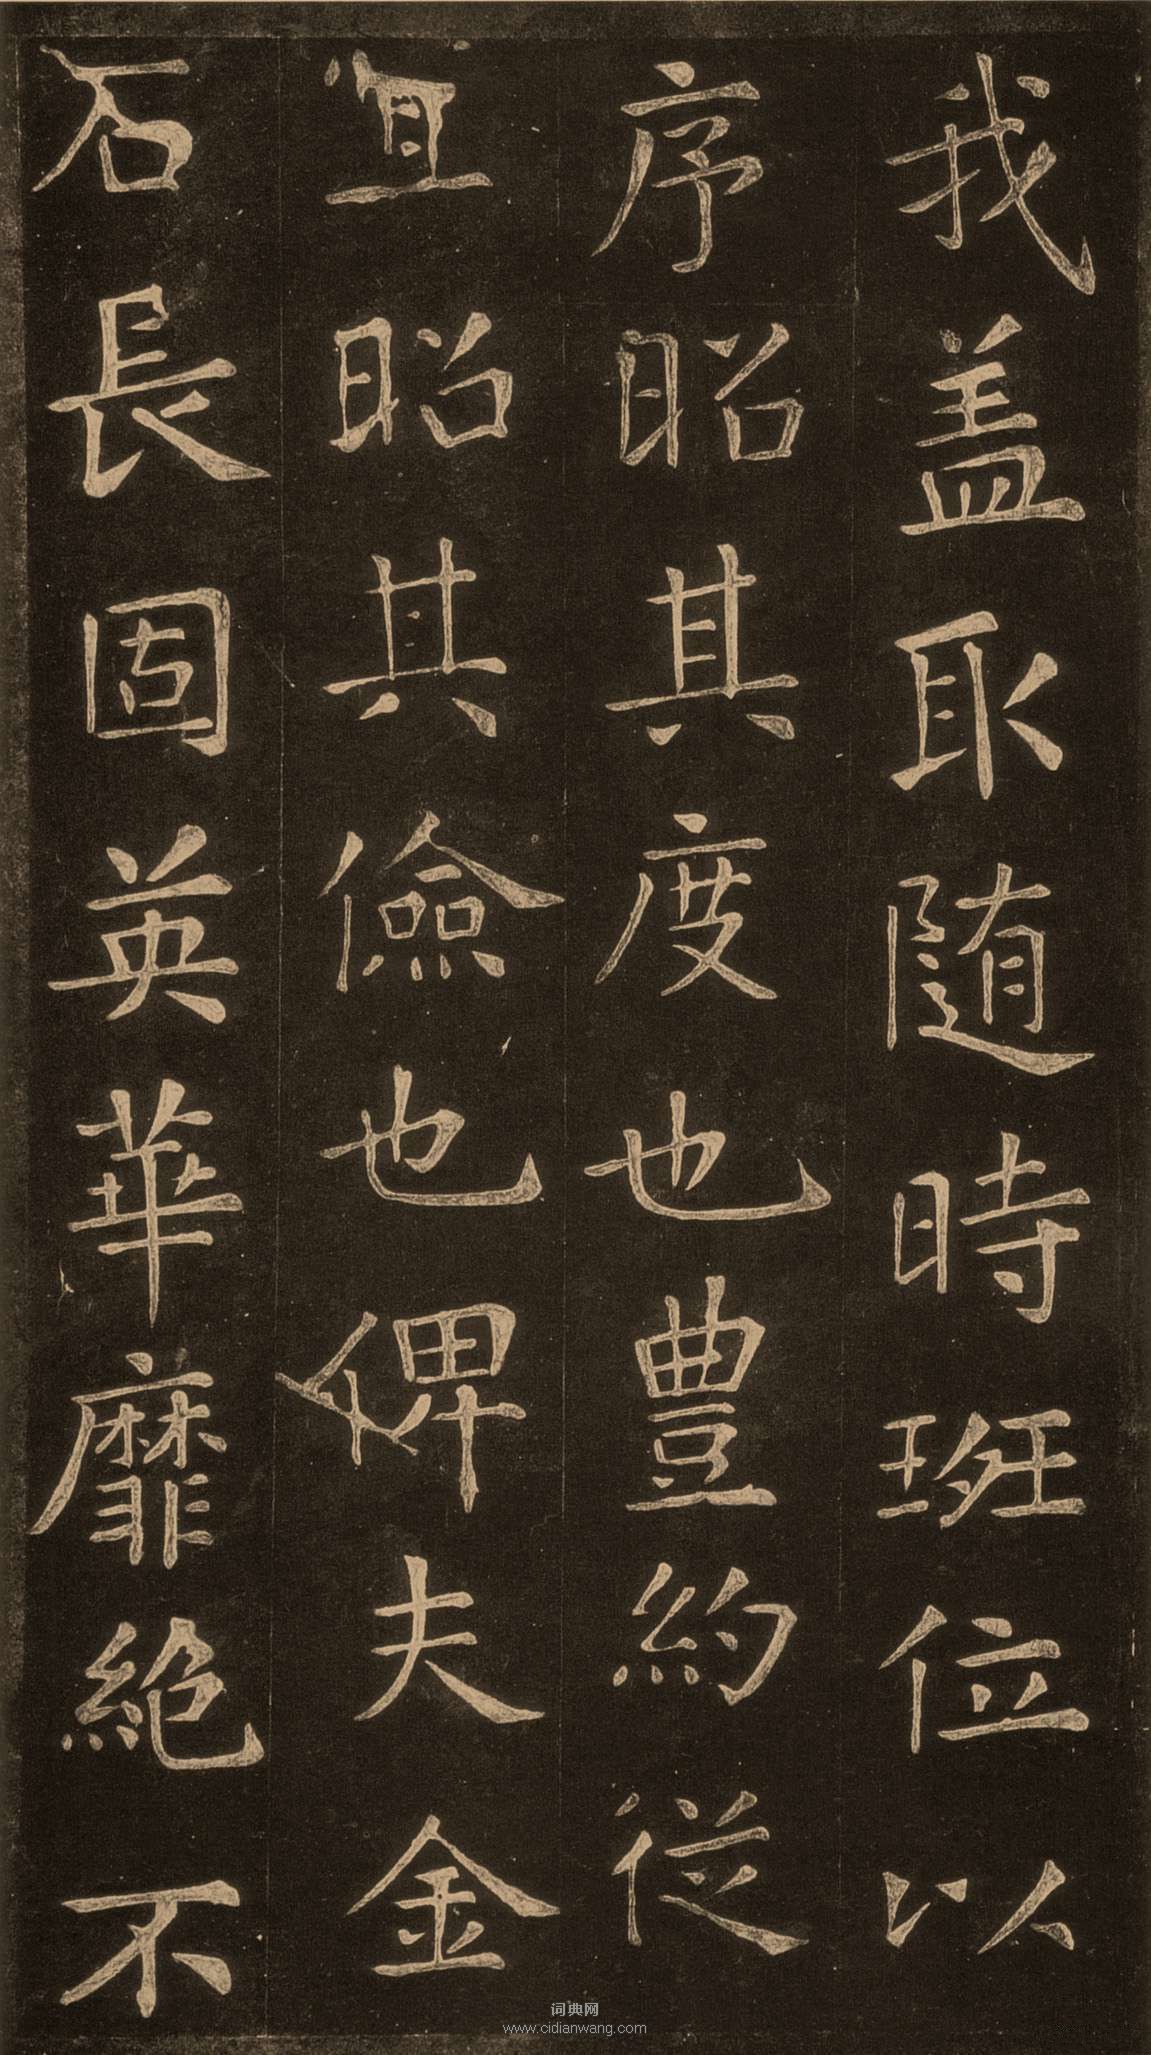 我盖取随時班位以
序昭其度也豊約従
宜昭其儉也俾夫金
石長固英華靡絶不
词典网
www.cidianwang.com